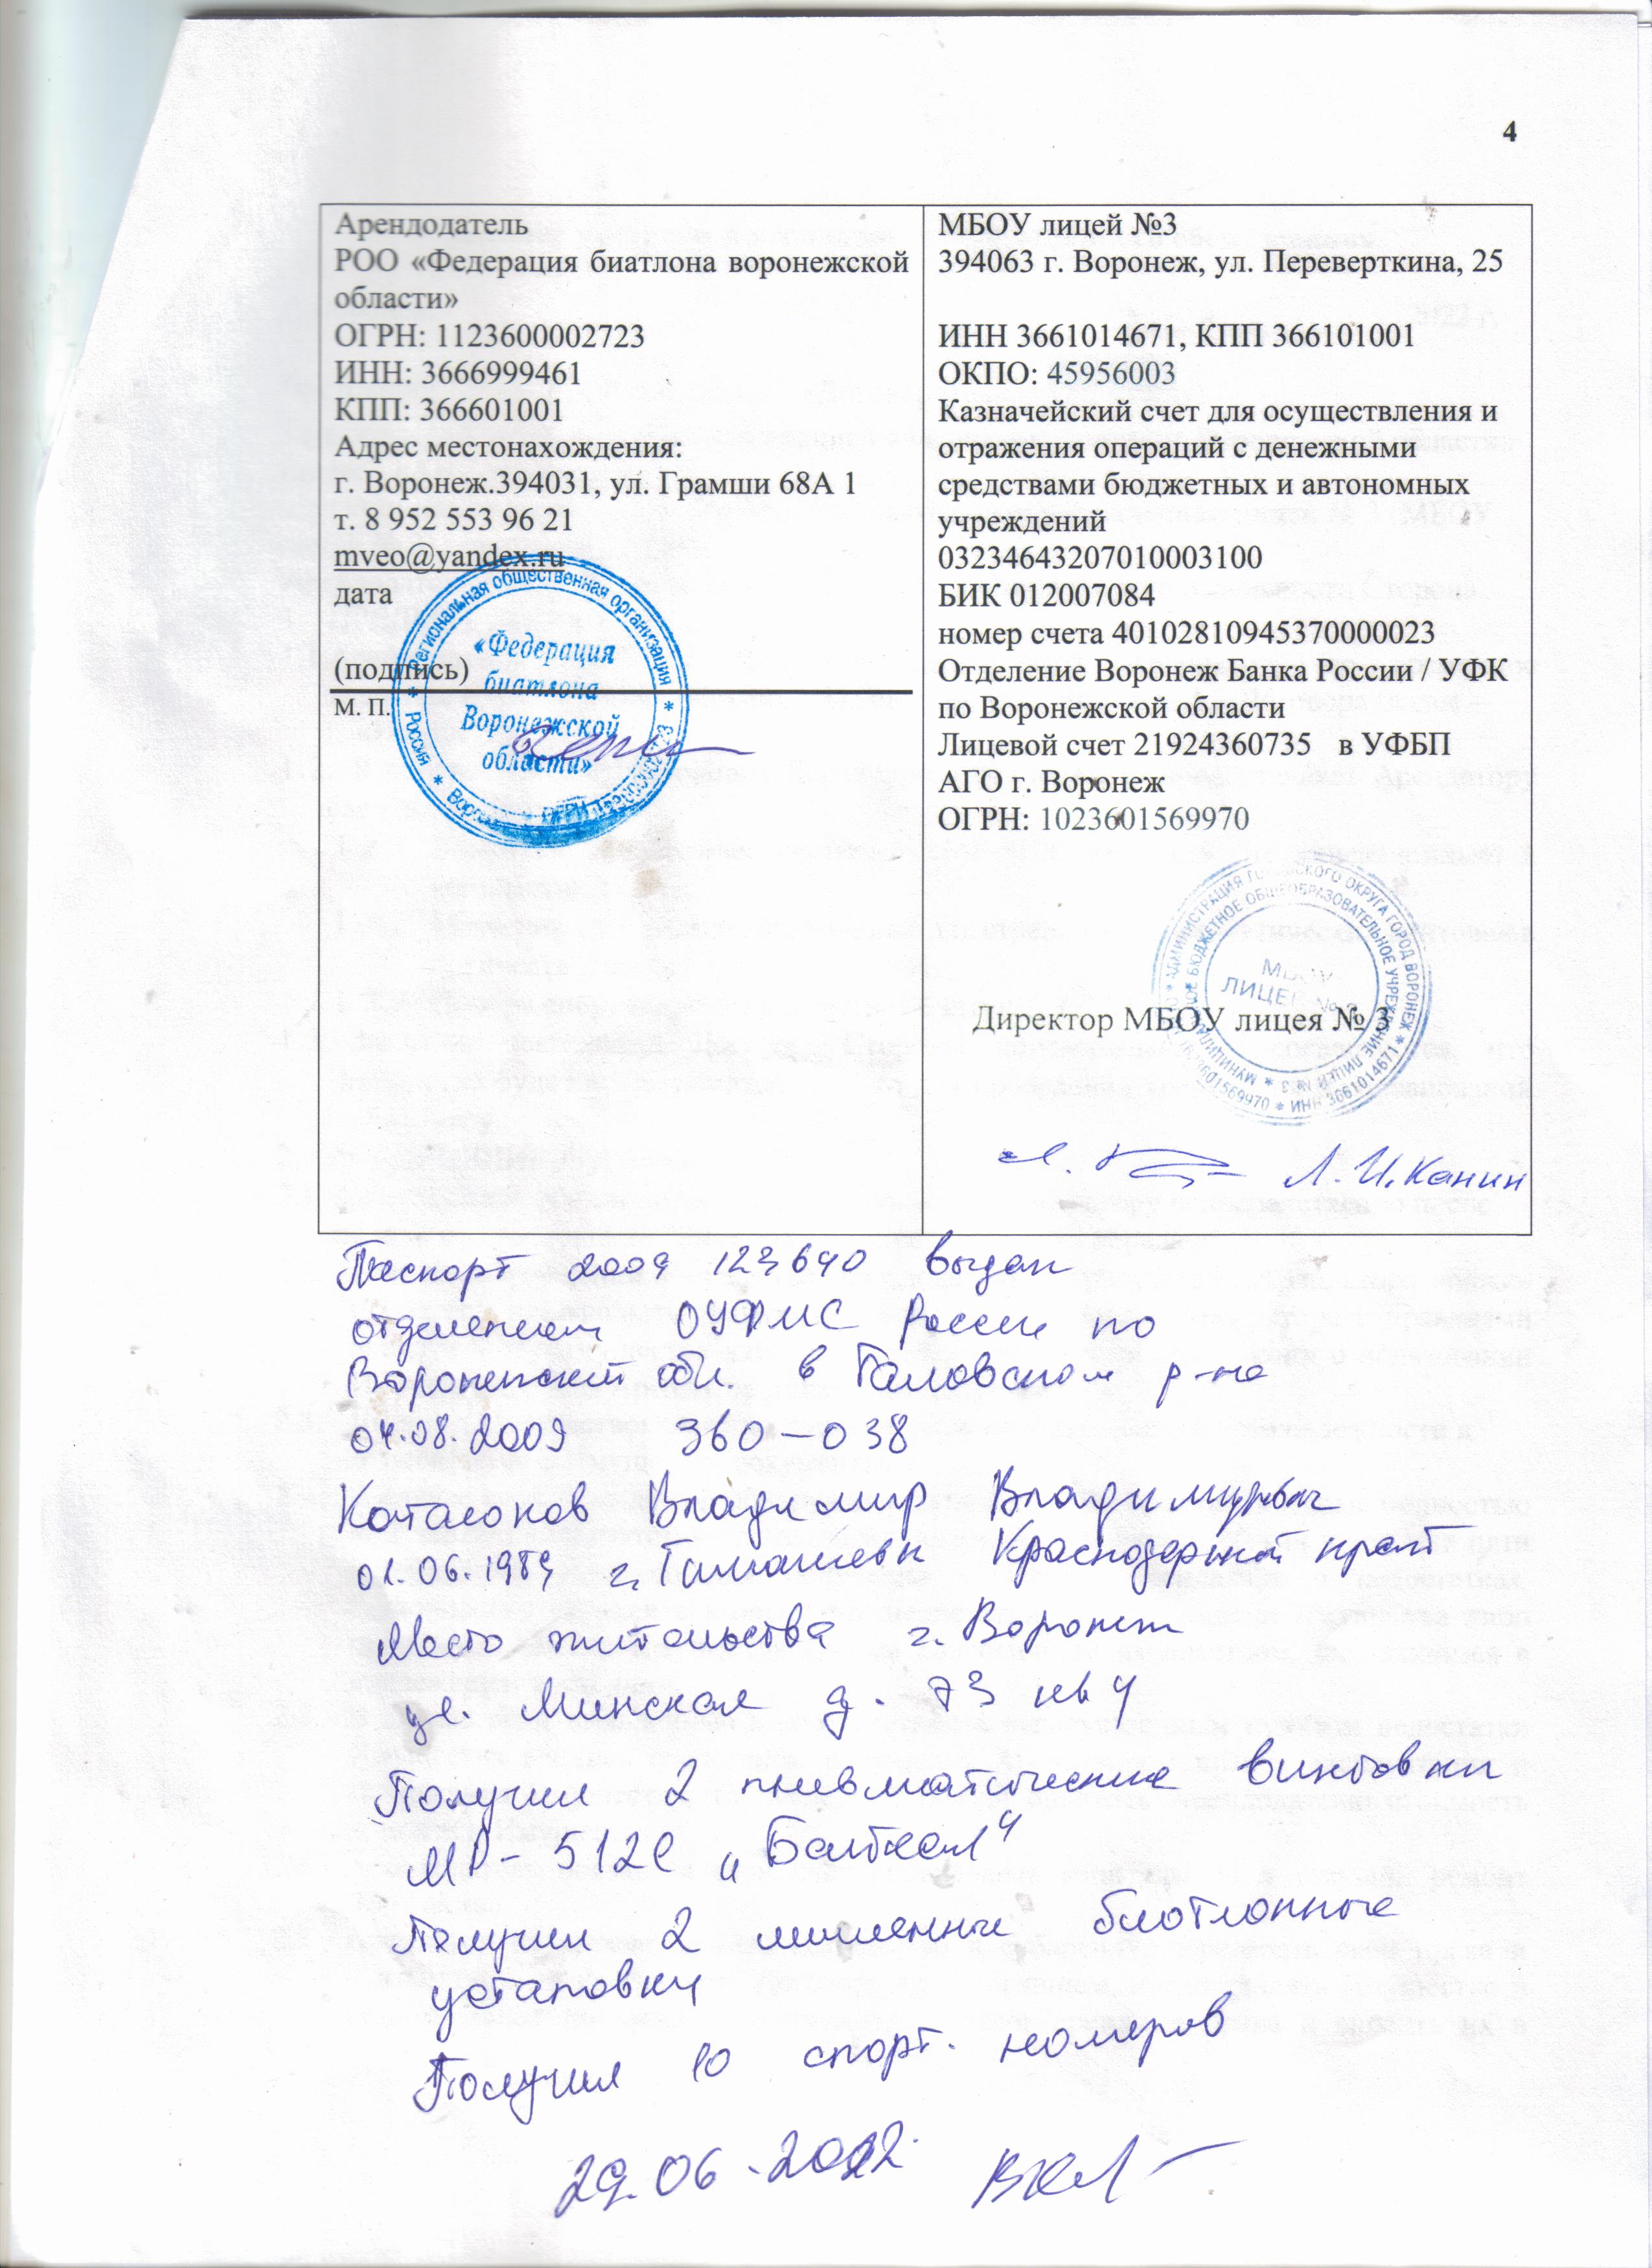 4
Арендодатель
РОО «Федерация биатлона воронежской
области»
ОГРН: 1123600002723
ИНН: 3666999461
КПП: 366601001
Адрес местонахождения:
г. Воронеж.394031, ул. Грамши 68А 1
т. 8 952 553 96 21
mveo@yandex.ru
дата
(подпись)
М. П.
Региональная общественная организация
«Федерация
биатлона
Воронежской
области»
Россия
МБОУ лицей №3
394063 г. Воронеж, ул. Переверткина, 25
ИНН 3661014671, КПП 366101001
ОКПО: 45956003
Казначейский счет для осуществления и
отражения операций с денежными
средствами бюджетных и автономных
учреждений
03234643207010003100
БИК 012007084
номер счета 40102810945370000023
Отделение Воронеж Банка России / УФК
по Воронежской области
Лицевой счет 21924360735 в УФБП
АГО г. Воронеж
ОГРН: 1023601569970
АДМИНИСТРАЦИЯ ГОРОДСКОГО ОКРУГА ГОРОД ВОРОНЕЖ * ИНН 3661014671 *
БЮДЖЕТНОЕ ОБЩЕОБРАЗОВАТЕЛЬНОЕ УЧРЕЖДЕНИЕ ЛИЦЕЙ № 3
МБОУ
ЛИЦЕЙ № 3
Директор МБОУ лицея № 3
Л. И. Канин
Паспорт 2009 123640 выдан
отделением ОУФМС России по
Воронежской обл. в Таловском р-не
04.08.2009 360-038
Катасонов Владимир Владимирович
01.06.1989 г. Тимашевск Краснодарский край
Место жительства г. Воронеж
ул. Минская д. 73 кв 4
Получил 2 пневматические винтовки
МР-512С „Байкал“
Получил 2 мишенные биатлонные
установки
Получил 10 спорт. номеров
29.06.2022